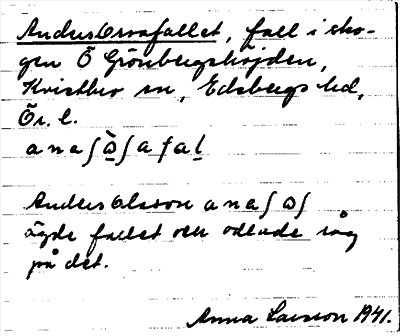 Andersorsafallet, fall i sko-
gen Ö Grönbergshöjden,
Kvistbro sn, Edsbergs hd,
Ör. l.
anaʃɑ̀ʃafal
Anders Olsson anaʃɑʃ
ägde fallet och odlade råg
på det.
Anna Larsson 1941.